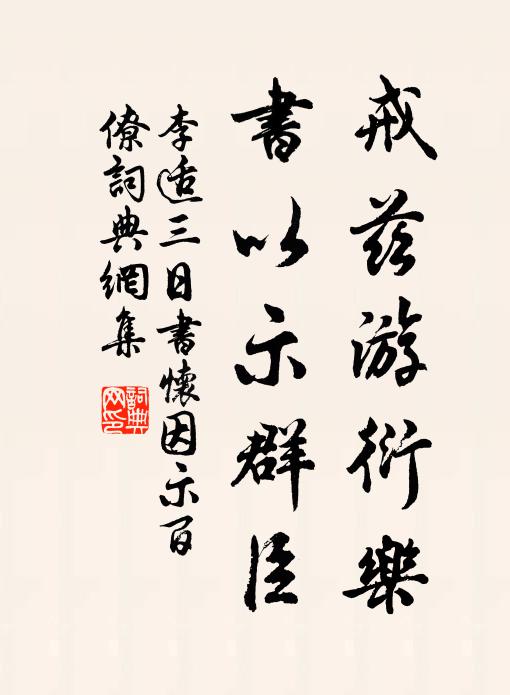 戒茲游衍樂
書以示群臣
李适三日書懷因示百
僚詞典網集
詞典
网印